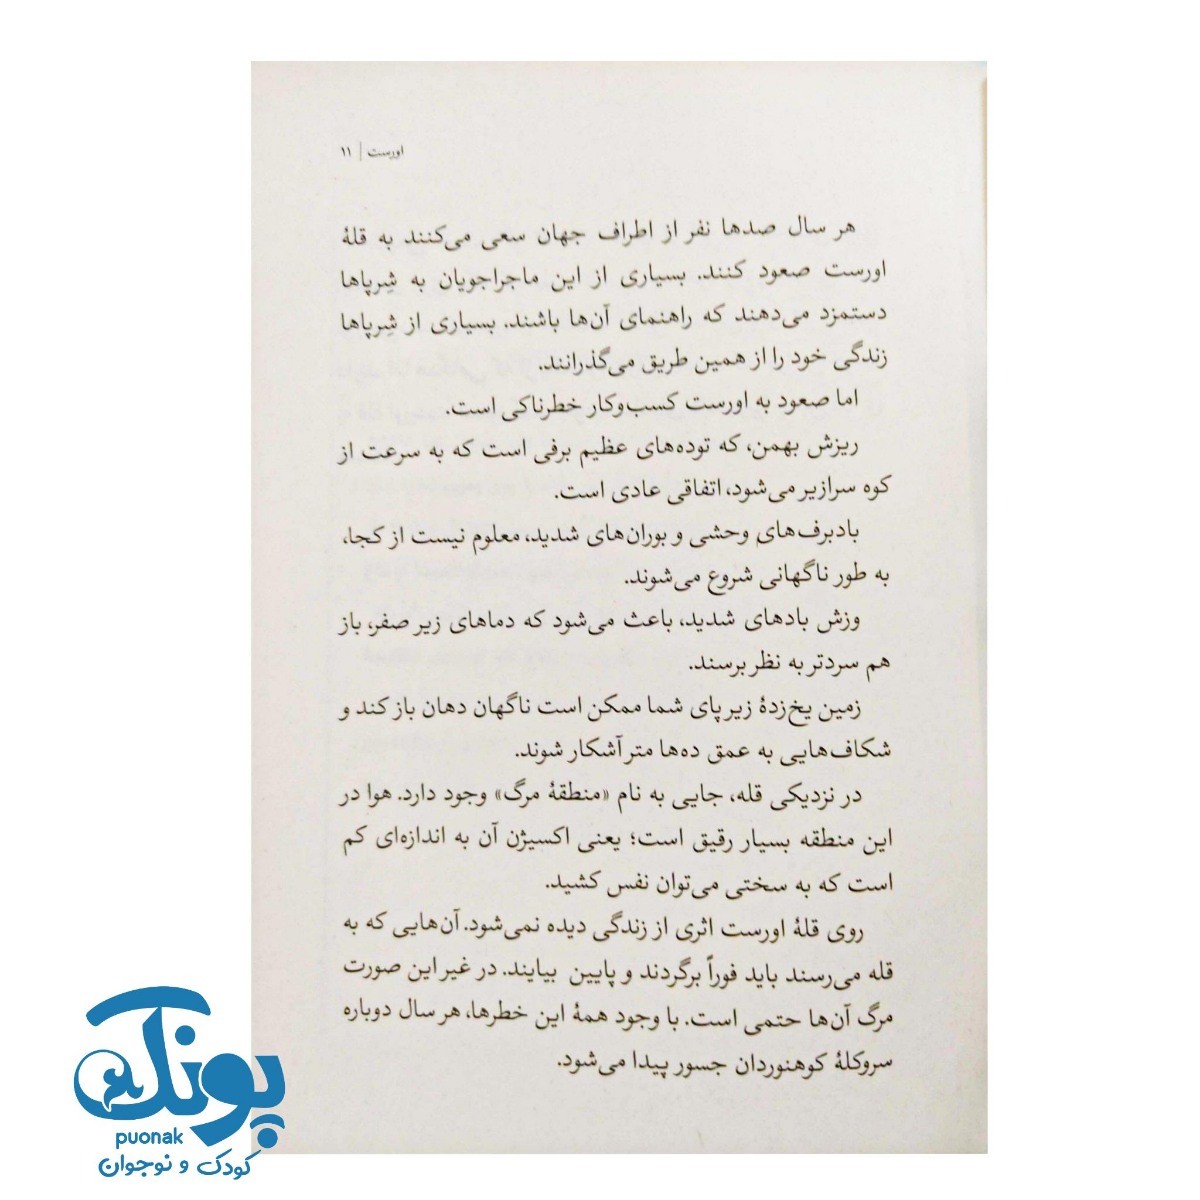 اورست | ۱۱
هر سال صدها نفر از اطراف جهان سعی می‌کنند به قلهٔ
اورست صعود کنند. بسیاری از این ماجراجویان به شِرپاها
دستمزد می‌دهند که راهنمای آن‌ها باشند. بسیاری از شِرپاها
زندگی خود را از همین طریق می‌گذرانند.
اما صعود به اورست کسب‌وکار خطرناکی است.
ریزش بهمن، که توده‌های عظیم برفی است که به سرعت از
کوه سرازیر می‌شود، اتفاقی عادی است.
بادبرف‌های وحشی و بوران‌های شدید، معلوم نیست از کجا،
به طور ناگهانی شروع می‌شوند.
وزش بادهای شدید، باعث می‌شود که دماهای زیر صفر، باز
هم سردتر به نظر برسند.
زمین یخ‌زدهٔ زیر پای شما ممکن است ناگهان دهان باز کند و
شکاف‌هایی به عمق ده‌ها متر آشکار شوند.
در نزدیکی قله، جایی به نام «منطقهٔ مرگ» وجود دارد. هوا در
این منطقه بسیار رقیق است؛ یعنی اکسیژن آن به اندازه‌ای کم
است که به سختی می‌توان نفس کشید.
روی قلهٔ اورست اثری از زندگی دیده نمی‌شود. آن‌هایی که به
قله می‌رسند باید فوراً برگردند و پایین بیایند. در غیر این صورت
مرگ آن‌ها حتمی است. با وجود همهٔ این خطرها، هر سال دوباره
سروکلهٔ کوهنوردان جسور پیدا می‌شود.
پونک
puonak
کودک و نوجوان